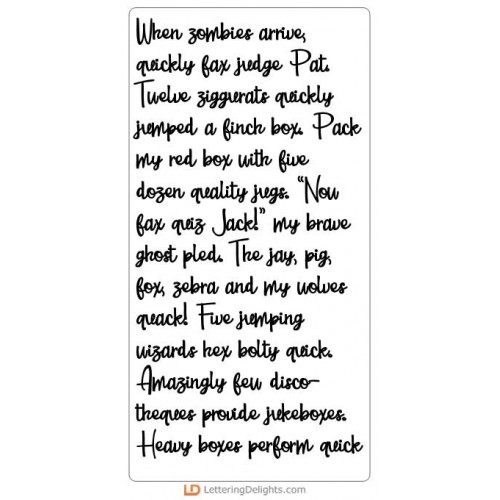 When zombies arrive,
quickly fax judge Pat.
Twelve ziggurats quickly
jumped a finch box. Pack
my red box with five
dozen quality jugs. “Now
fax quiz Jack!” my brave
ghost pled. The jay, pig,
fox, zebra and my wolves
quack! Five jumping
wizards hex bolty quick.
Amazingly few disco-
theques provide jukeboxes.
Heavy boxes perform quick
LD LetteringDelights.com